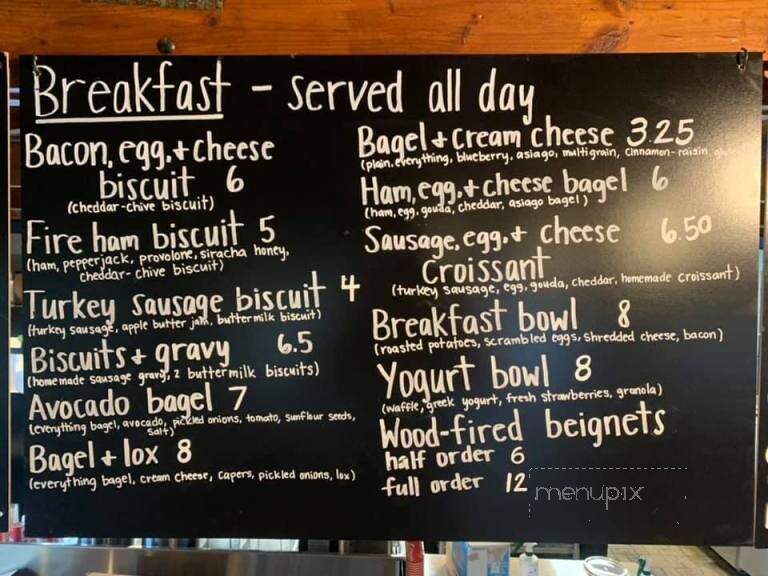 Breakfast - served all day
Bacon, egg, + cheese
biscuit 6
(cheddar-chive biscuit)
Fire ham biscuit 5
(ham, pepperjack, provolone, siracha honey,
cheddar-chive biscuit)
Turkey sausage biscuit 4
(turkey sausage, apple butter jam, buttermilk biscuit)
Biscuits + gravy 6.5
(homemade sausage gravy, 2 buttermilk biscuits)
Avocado bagel 7
(everything bagel, avocado, pickled onions, tomato, sunflour seeds,
salt)
Bagel + lox 8
(everything bagel, cream cheese, capers, pickled onions, lox)
Bagel + cream cheese 3.25
(plain, everything, blueberry, asiago, multigrain, cinnamon-raisin,
Ham, egg, + cheese bagel 6
(ham, egg, gouda, cheddar, asiago bagel)
Sausage, egg, + cheese 6.50
croissant
(turkey sausage, egg, gouda, cheddar, homemade croissant)
Breakfast bowl 8
(roasted potatoes, scrambled eggs, shredded cheese, bacon)
Yogurt bowl 8
(waffle, greek yogurt, fresh strawberries, granola)
Wood-fired beignets
half order 6
full order 12
menupix